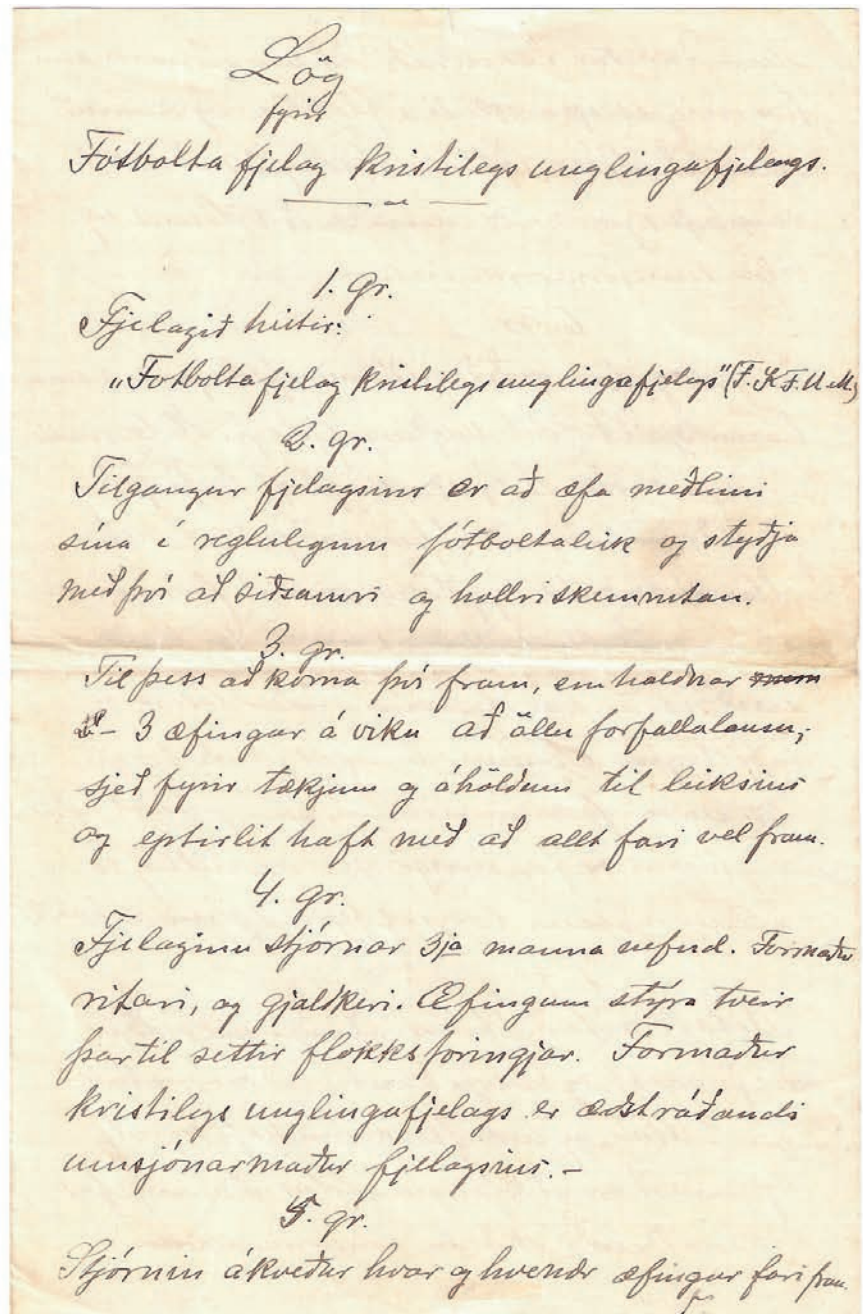 Lög
fyrir
Fótbolta fjelag kristilegs unglingafjelags.
1. gr.
Fjelagið heitir:
„Fotbolta fjelag kristilegs unglingafjelgs" (F. K. F. U. M.)
2. gr.
Tilgangur fjelagsins er að æfa meðlimi
sína í reglulegum fótboltaleik og styðja
með því að siðsamri og hollri skemmtan.
3. gr.
Til þess að koma því fram, eru haldnar
2 - 3 æfingar á viku að öllu forfallalausu,
sjeð fyrir tækjum og áhöldum til leiksins
og eptirlit haft með að allt fari vel fram.
4. gr.
Fjelaginu stjórnar 3ja manna nefnd. Formaður
ritari, og gjaldkeri. Æfingum stýra tveir
þar til settir flokksforingjar. Formaður
kristilegs unglingafjelags er æðstráðandi
umsjónarmaður fjelagsins. -
5. gr.
Stjórnin ákveður hvar og hvenær æfingar fari fram.